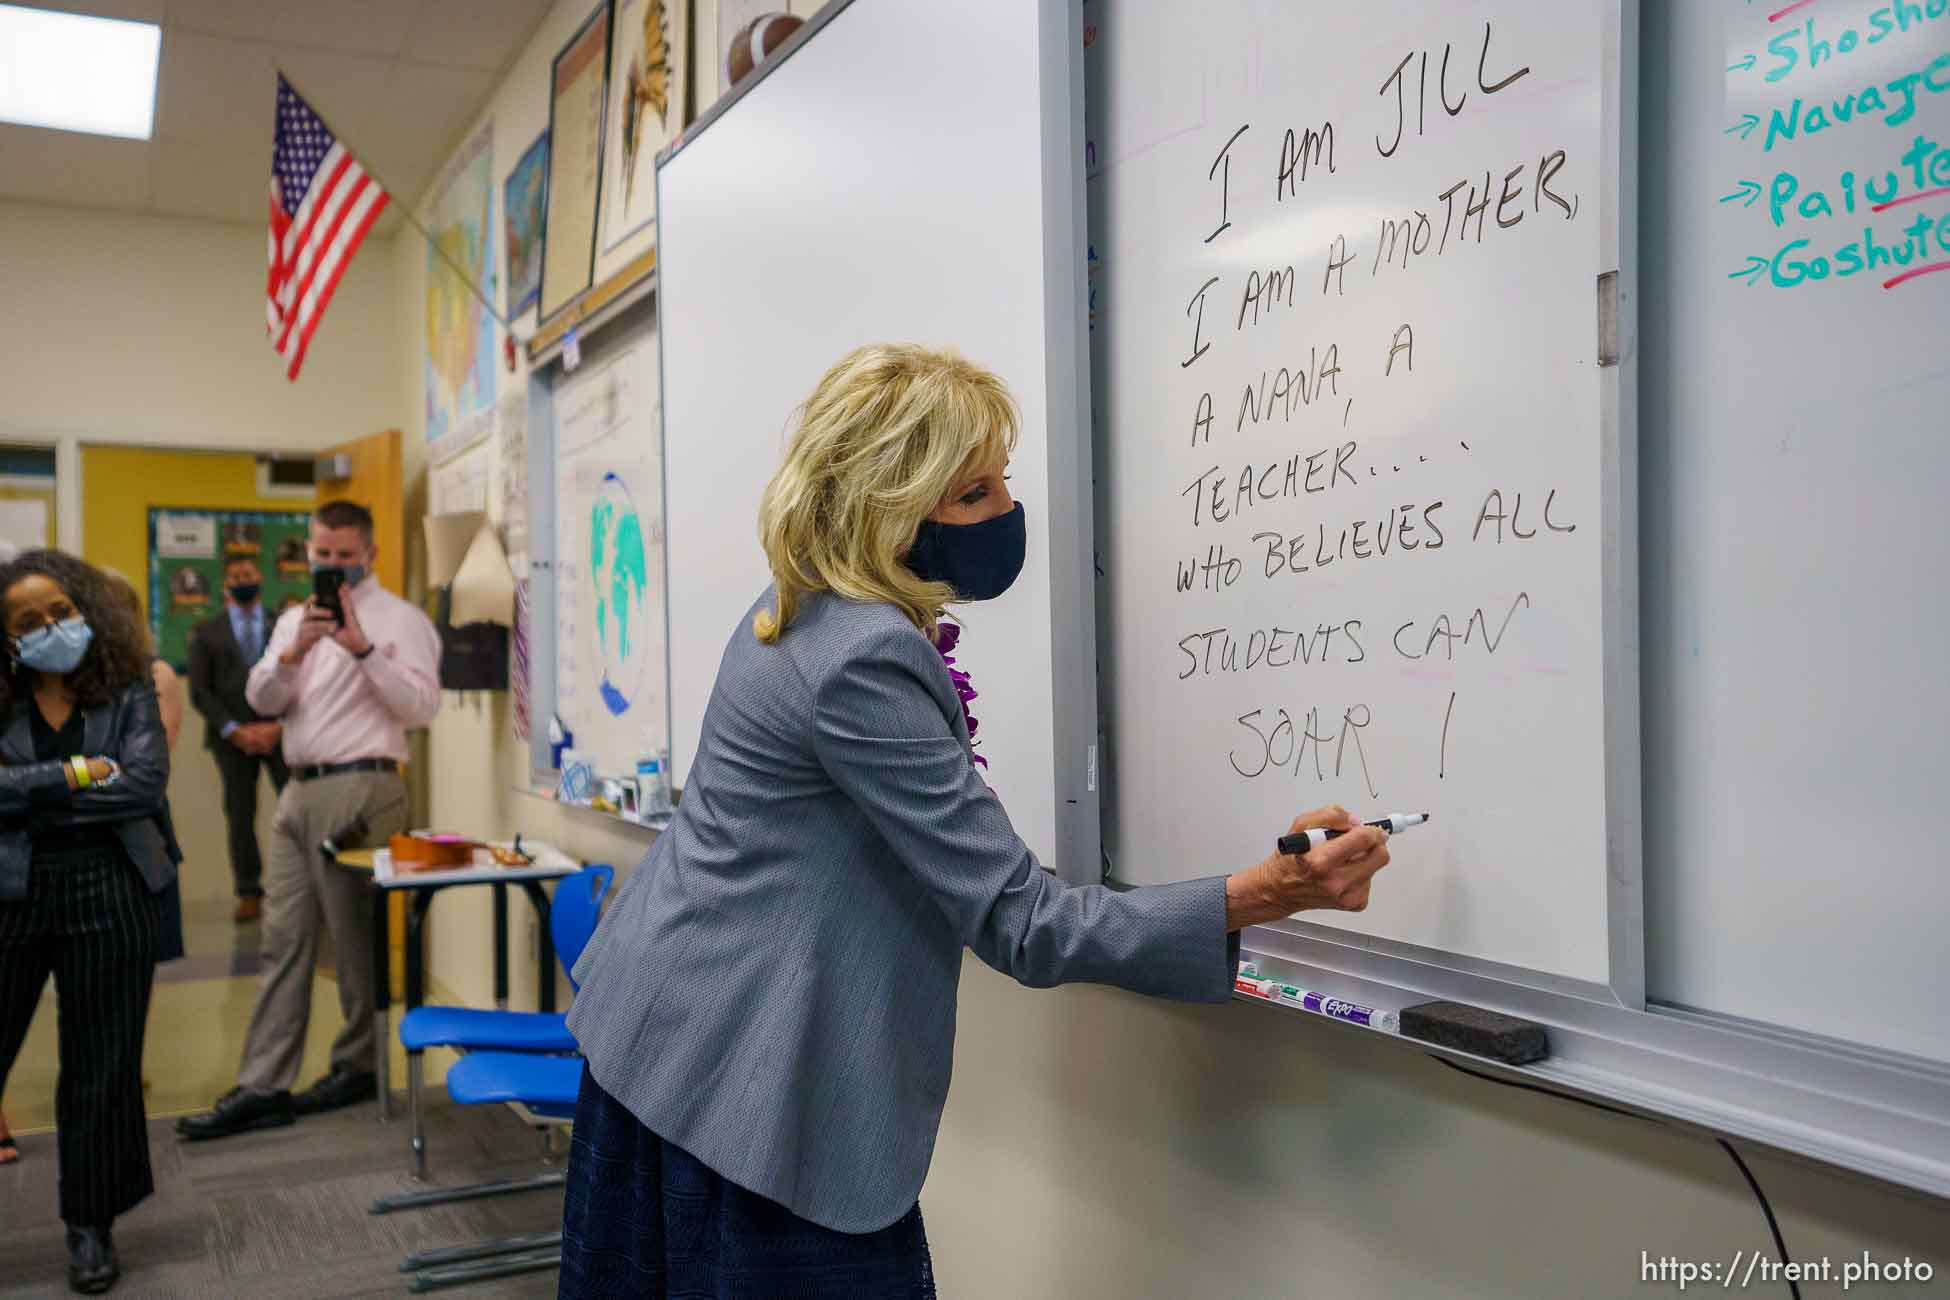 I AM JILL
I AM A MOTHER,
A NANA, A
TEACHER....
WHO BELIEVES ALL
STUDENTS CAN
SOAR !
→ Shosho
→ Navajo
→ Paiute
→ Goshute
EXPO
https://trent.photo